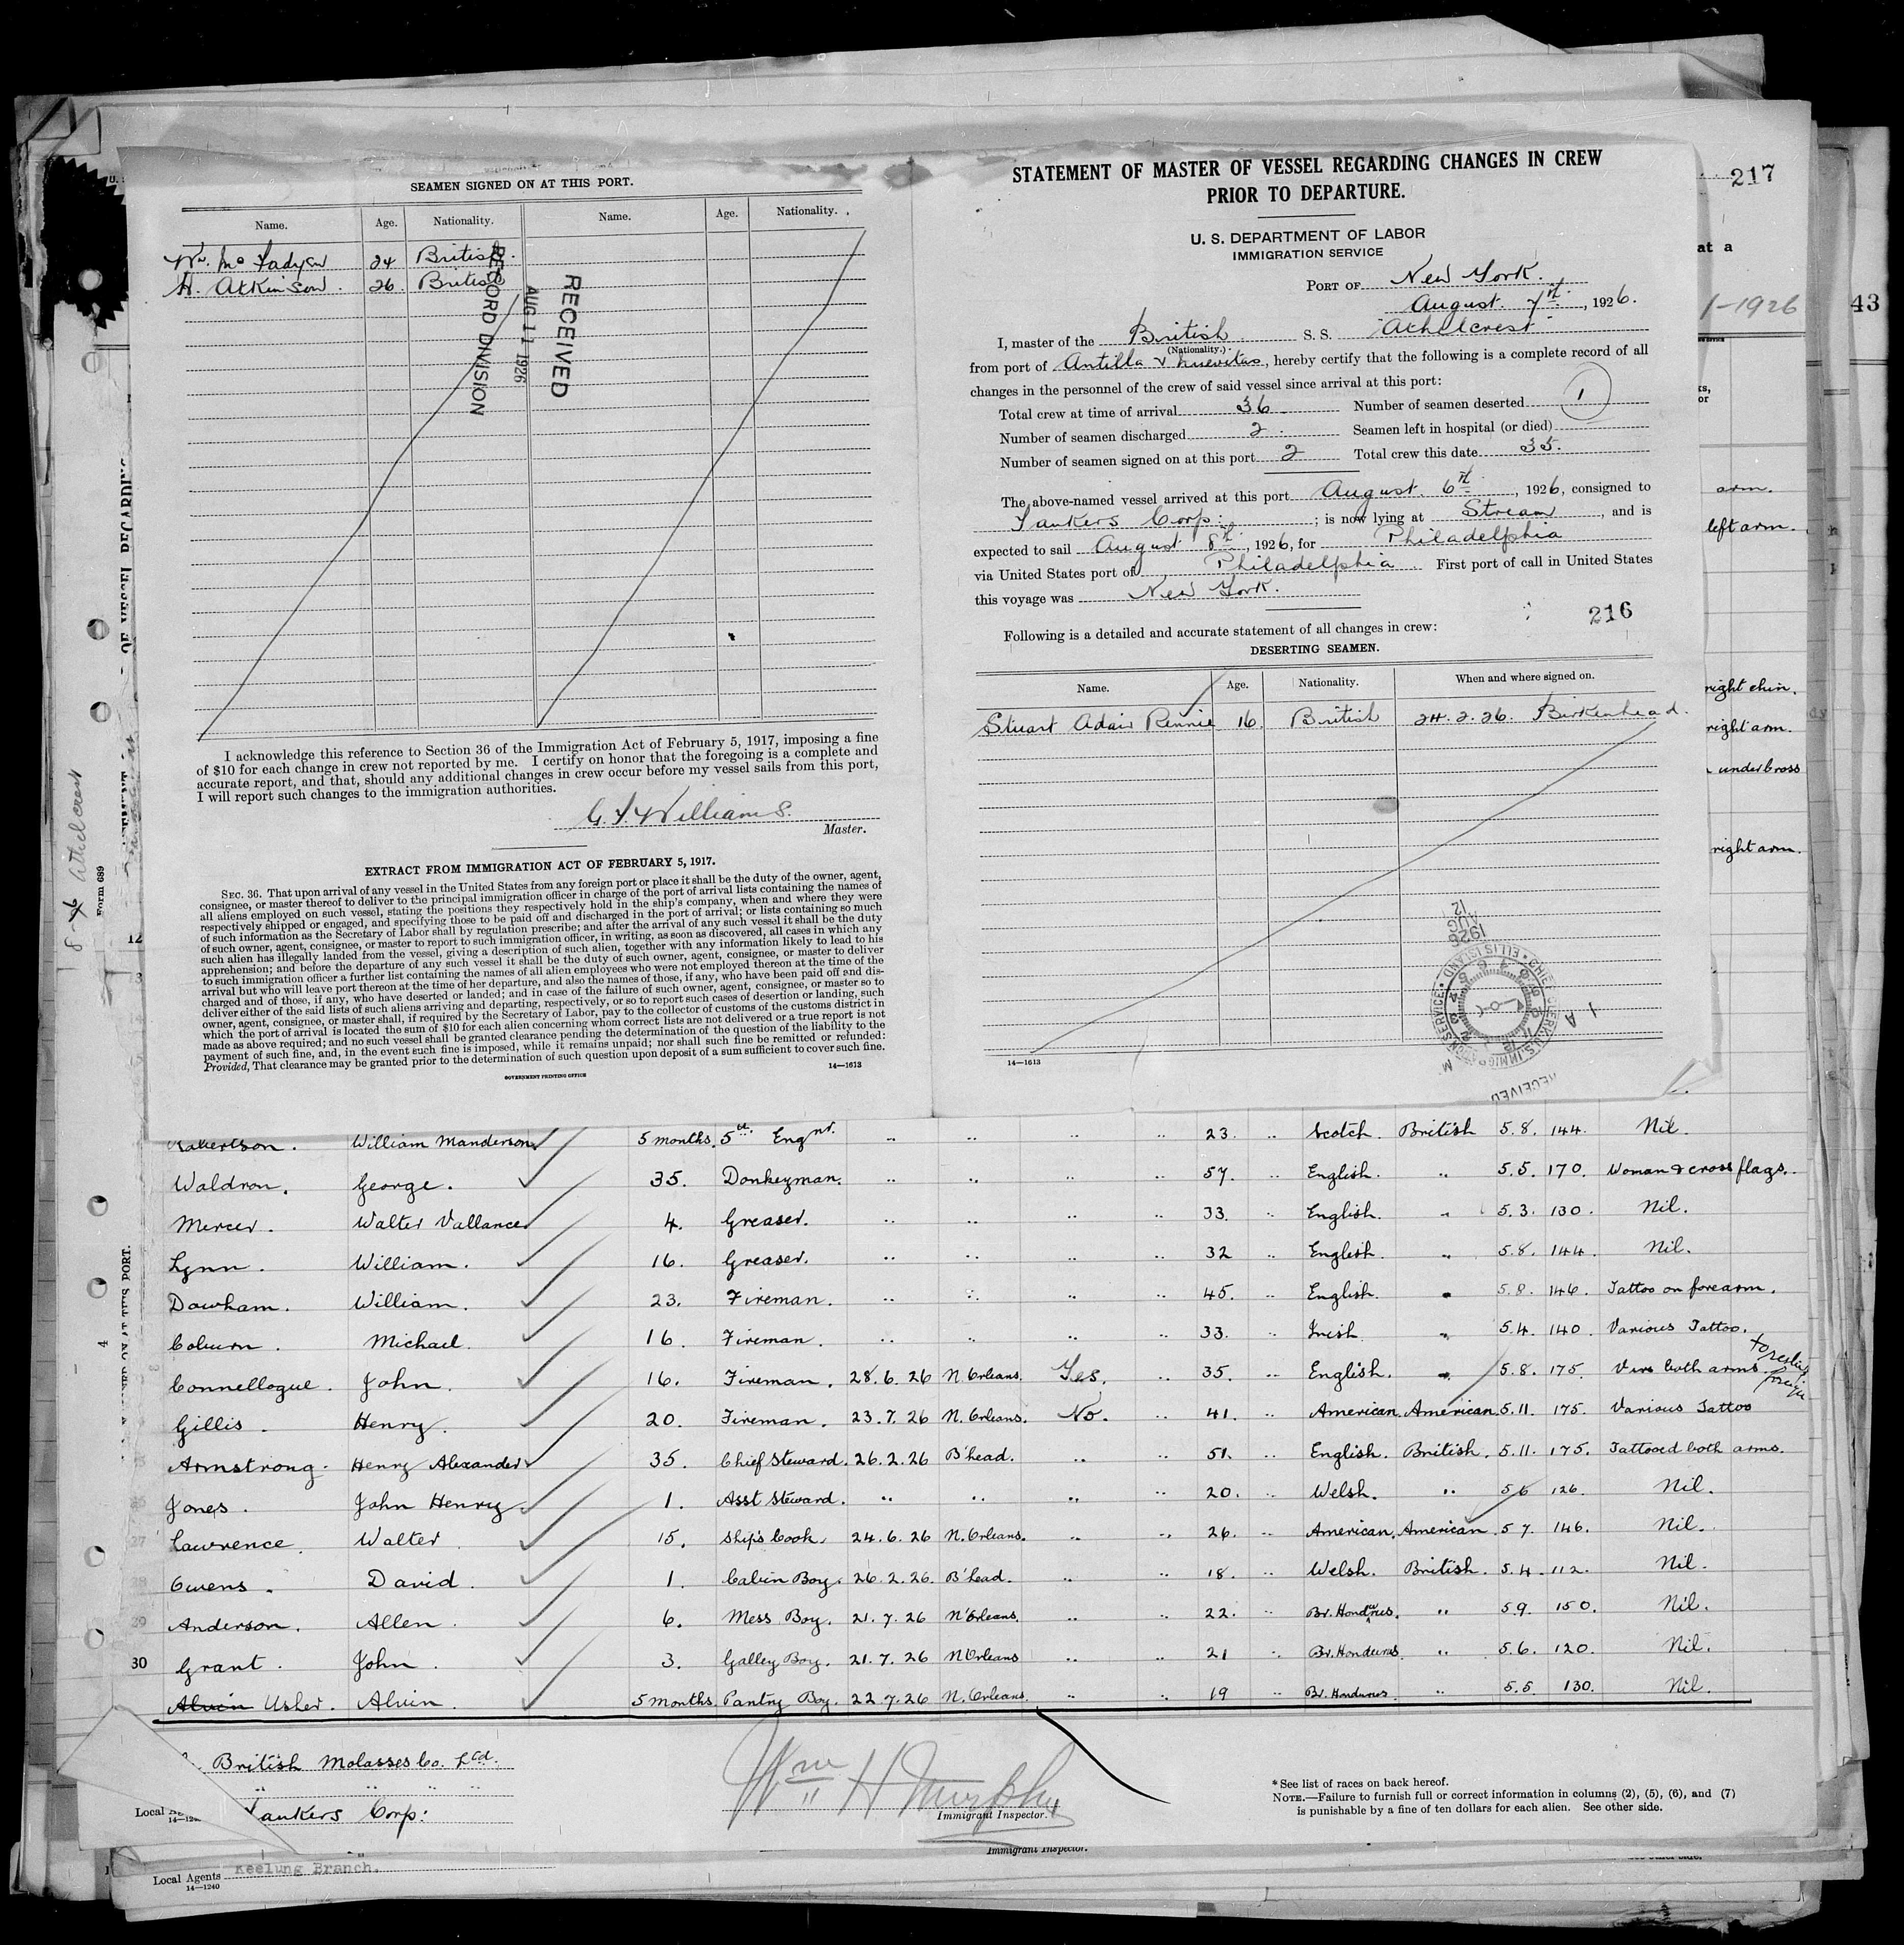 SEAMEN SIGNED ON AT THIS PORT.
Name. Age. Nationality. Name. Age. Nationality.
Wm. McFadyen 24 British.
H. Atkinson. 26. British
RECEIVED
AUG 11 1926
RECORD DIVISION
I acknowledge this reference to Section 36 of the Immigration Act of February 5, 1917, imposing a fine
of $10 for each change in crew not reported by me. I certify on honor that the foregoing is a complete and
accurate report, and that, should any additional changes in crew occur before my vessel sails from this port,
I will report such changes to the immigration authorities.
G. T. Williams.
Master.
EXTRACT FROM IMMIGRATION ACT OF FEBRUARY 5, 1917.
SEC. 36. That upon arrival of any vessel in the United States from any foreign port or place it shall be the duty of the owner, agent,
consignee, or master thereof to deliver to the principal immigration officer in charge of the port of arrival lists containing the names of
all aliens employed on such vessel, stating the positions they respectively hold in the ship's company, when and where they were
respectively shipped or engaged, and specifying those to be paid off and discharged in the port of arrival; or lists containing so much
of such information as the Secretary of Labor shall by regulation prescribe; and after the arrival of any such vessel it shall be the duty
of such owner, agent, consignee, or master to report to such immigration officer, in writing, as soon as discovered, all cases in which any
such alien has illegally landed from the vessel, giving a description of such alien, together with any information likely to lead to his
apprehension; and before the departure of any such vessel it shall be the duty of such owner, agent, consignee, or master to deliver
to such immigration officer a further list containing the names of all alien employees who were not employed thereon at the time of the
arrival but who will leave port thereon at the time of her departure, and also the names of those, if any, who have been paid off and dis-
charged and of those, if any, who have deserted or landed; and in case of the failure of such owner, agent, consignee, or master so to
deliver either of the said lists of such aliens arriving and departing, respectively, or so to report such cases of desertion or landing, such
owner, agent, consignee, or master shall, if required by the Secretary of Labor, pay to the collector of customs of the customs district in
which the port of arrival is located the sum of $10 for each alien concerning whom correct lists are not delivered or a true report is not
made as above required; and no such vessel shall be granted clearance pending the determination of the question of the liability to the
payment of such fine, and, in the event such fine is imposed, while it remains unpaid; nor shall such fine be remitted or refunded:
Provided, That clearance may be granted prior to the determination of such question upon deposit of a sum sufficient to cover such fine.
14—1613
GOVERNMENT PRINTING OFFICE
STATEMENT OF MASTER OF VESSEL REGARDING CHANGES IN CREW
PRIOR TO DEPARTURE.
U. S. DEPARTMENT OF LABOR
IMMIGRATION SERVICE
PORT OF New York.
August. 7th., 1926.
I, master of the British S. S. "Athelcrest"
(Nationality.)
from port of Antilla & Nuevitas, hereby certify that the following is a complete record of all
changes in the personnel of the crew of said vessel since arrival at this port:
Total crew at time of arrival 36 Number of seamen deserted 1
Number of seamen discharged 2. Seamen left in hospital (or died)
Number of seamen signed on at this port 2 Total crew this date 35.
The above-named vessel arrived at this port August. 6th, 1926, consigned to
Tankers Corp: ; is now lying at Stream, and is
expected to sail August 8th, 1926, for Philadelphia
via United States port of Philadelphia First port of call in United States
this voyage was New York.
216
Following is a detailed and accurate statement of all changes in crew:
DESERTING SEAMEN.
Name. Age. Nationality. When and where signed on.
Stuart Adair Rennie 16. British 24.2.26. Birkenhead.
1926
AUG
12
CHIEF CLERK U.S. IMMIGRATION SERVICE • ELLIS ISLAND
RECEIVED
14—1613
217
at a
1-1926
43
arm.
left arm.
right chin.
right arm.
right arm.
8-6 Athelcrest
Form 689
12
4
Robertson. William Manderson 5 months. 5th Engnr. .. .. .. .. 23. .. Scotch. British 5.8. 144. Nil.
Waldron. George. 35. Donkeyman. .. .. .. .. 57. .. English. .. 5.5. 170. Woman & cross flags.
Mercer. Walter Vallance 4. Greaser. .. .. .. .. 33. .. English. .. 5.3. 130. Nil.
Lynn. William. 16. Greaser. .. .. .. .. 32 .. English. .. 5.8. 144. Nil.
Dawham. William. 23. Fireman. .. .. .. .. 45. .. English. .. 5.8. 146. Tattoo on forearm.
Coburn. Michael. 16. Fireman. .. .. .. .. 33. .. Irish. .. 5.4. 140. Various Tattoo.
Connellogue. John. 16. Fireman. 28.6.26 N Orleans. Yes. .. 35. .. English. .. 5.8. 175. both arms
Gillis. Henry. 20. Fireman. 23.7.26 N. Orleans. No. .. 41. .. American. American. 5.11. 175. Various Tattoo
Armstrong. Henry Alexander 35. Chief Steward. 26.2.26 B'head. .. .. 51. .. English. British. 5.11. 175. Tattooed both arms.
Jones. John Henry 1. Asst Steward. .. .. .. .. 20. .. Welsh. .. 5 6 126. Nil.
27 Lawrence Walter 15. Ship's Cook. 24.6.26 N. Orleans. .. .. 26. .. American. American. 5 7. 146. Nil.
Owens. David. 1. Cabin Boy. 26.2.26. B'head. .. .. 18. .. Welsh. British. 5.4. 112. Nil.
29 Anderson. Allen 6. Mess Boy. 21.7.26 N'Orleans. .. .. 22. .. Br. Honduras. .. 5.9. 150. Nil.
30 Grant. John. 3. Galley Boy. 21.7.26 N Orleans .. .. 21 .. Br. Honduras. .. 5.6. 120. Nil.
Alvin Usher. Alvin. 5 months. Pantry Boy. 22.7.26 N. Orleans. .. .. 19 .. Br. Honduras. .. 5.5. 130. Nil.
British Molasses Co. Ltd.
Tankers Corp:
Wm H Murphy
Immigrant Inspector.
* See list of races on back hereof.
NOTE.—Failure to furnish full or correct information in columns (2), (5), (6), and (7)
is punishable by a fine of ten dollars for each alien. See other side.
Immigrant Inspector.
Local Agents Keelung Branch.
14—1240